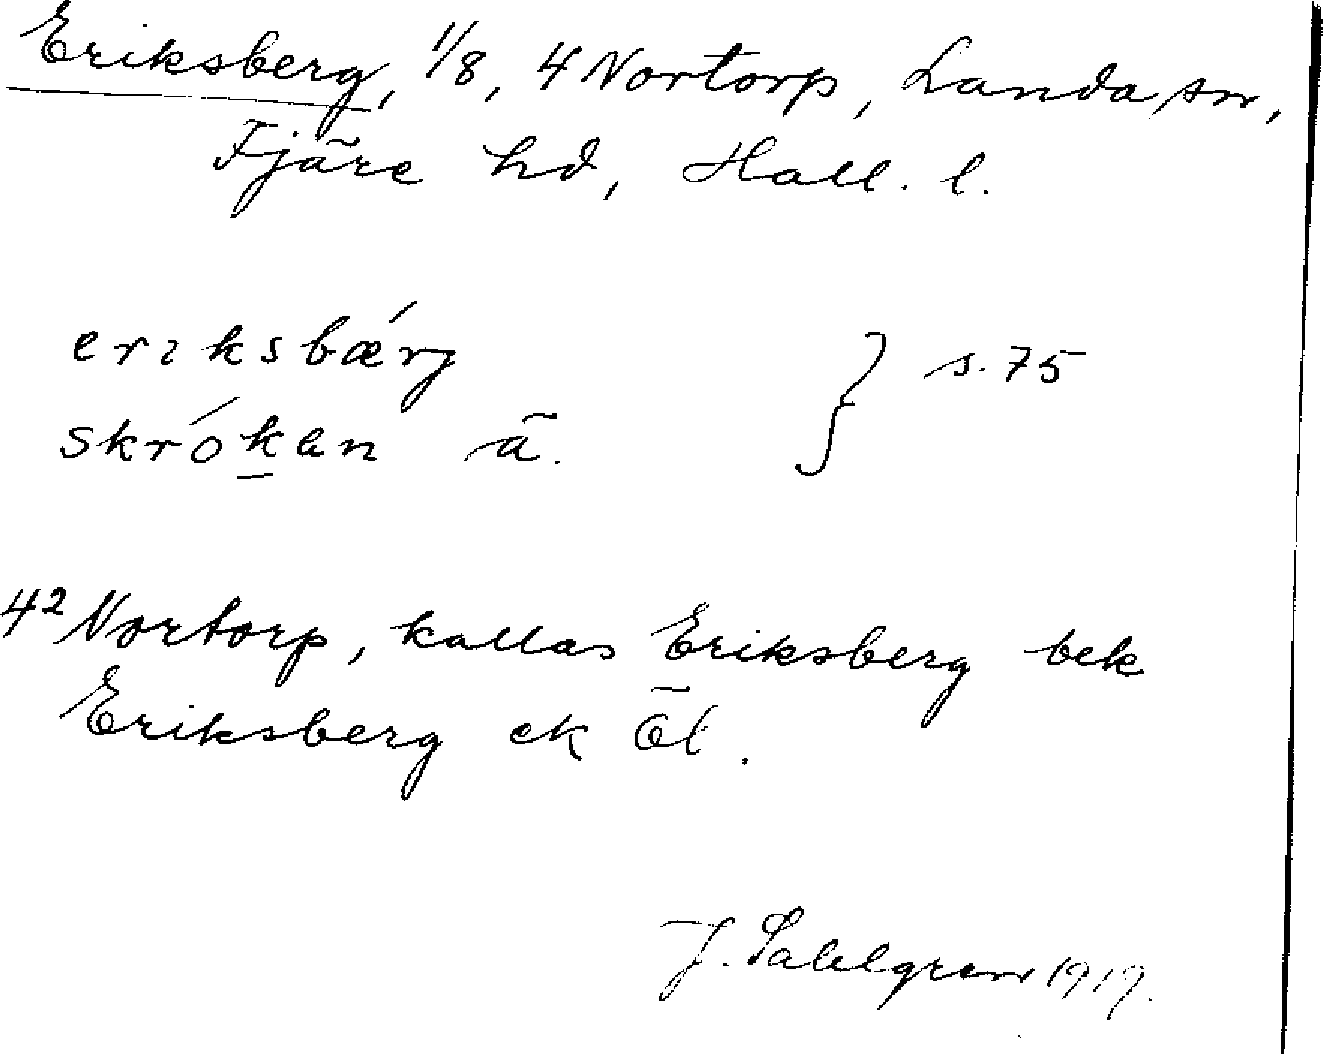 Eriksberg, 1/8, 4 Nortorp, Landa sn,
Fjäre hd, Hall. l.
eriksbǽrj } s. 75
skrókan ä.
4² Nortorp, kallas Eriksberg bek
Eriksberg ek öl.
J. Sahlgren 1919.